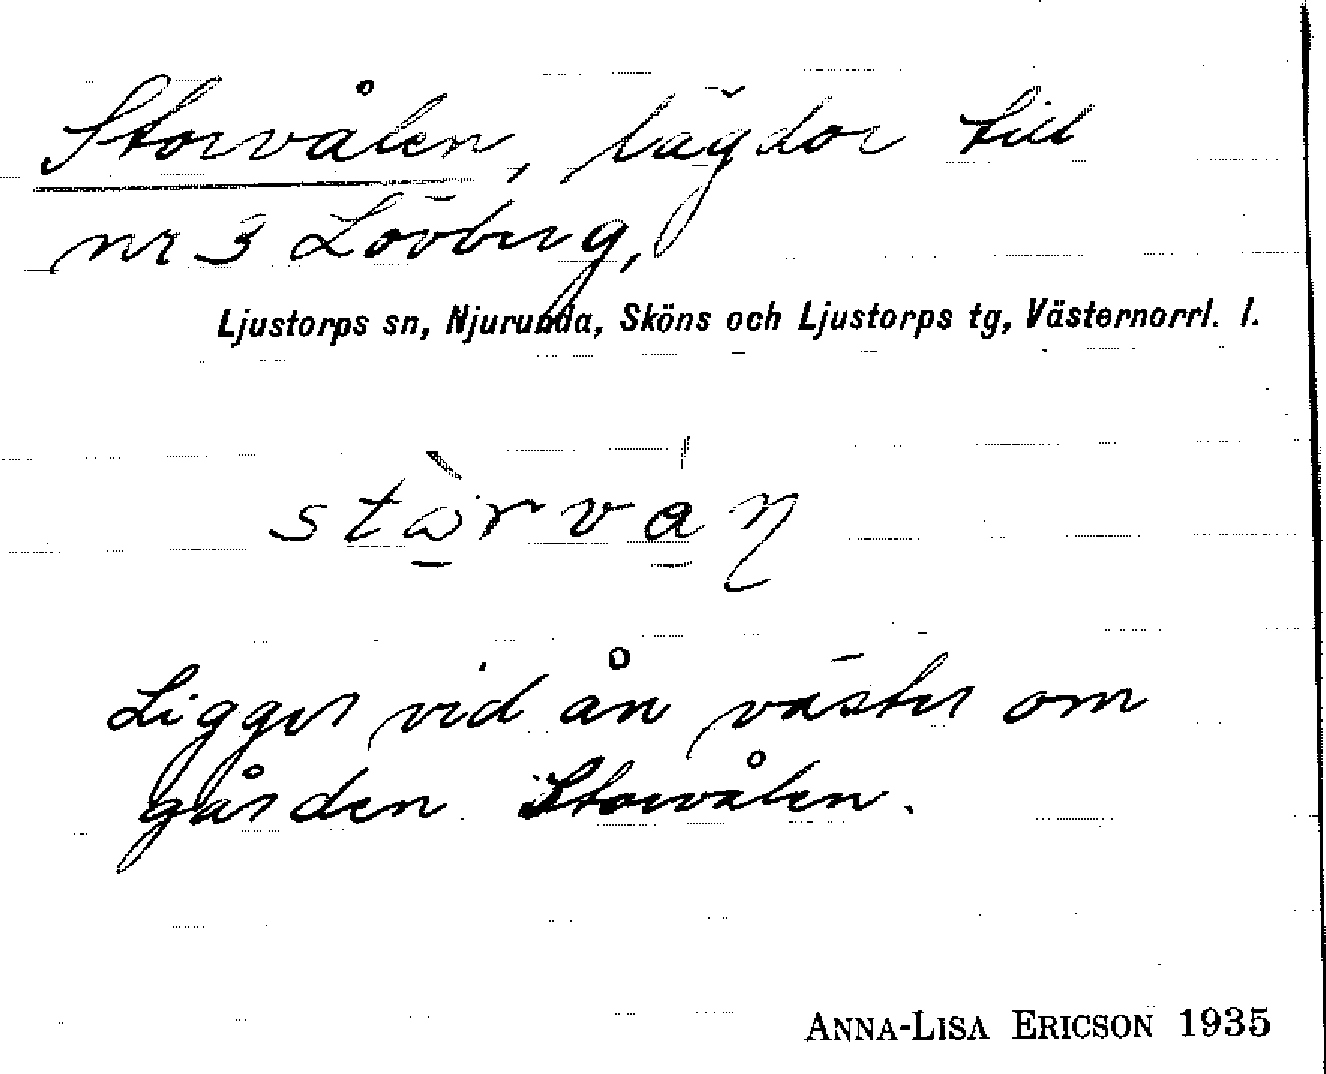 Storvålen, lägdor till
nr 3 Lövberg,
Ljustorps sn, Njurunda, Sköns och Ljustorps tg, Västernorrl. l.
Ligger vid ån väster om
gården Storvålen.
ANNA-LISA ERICSON 1935